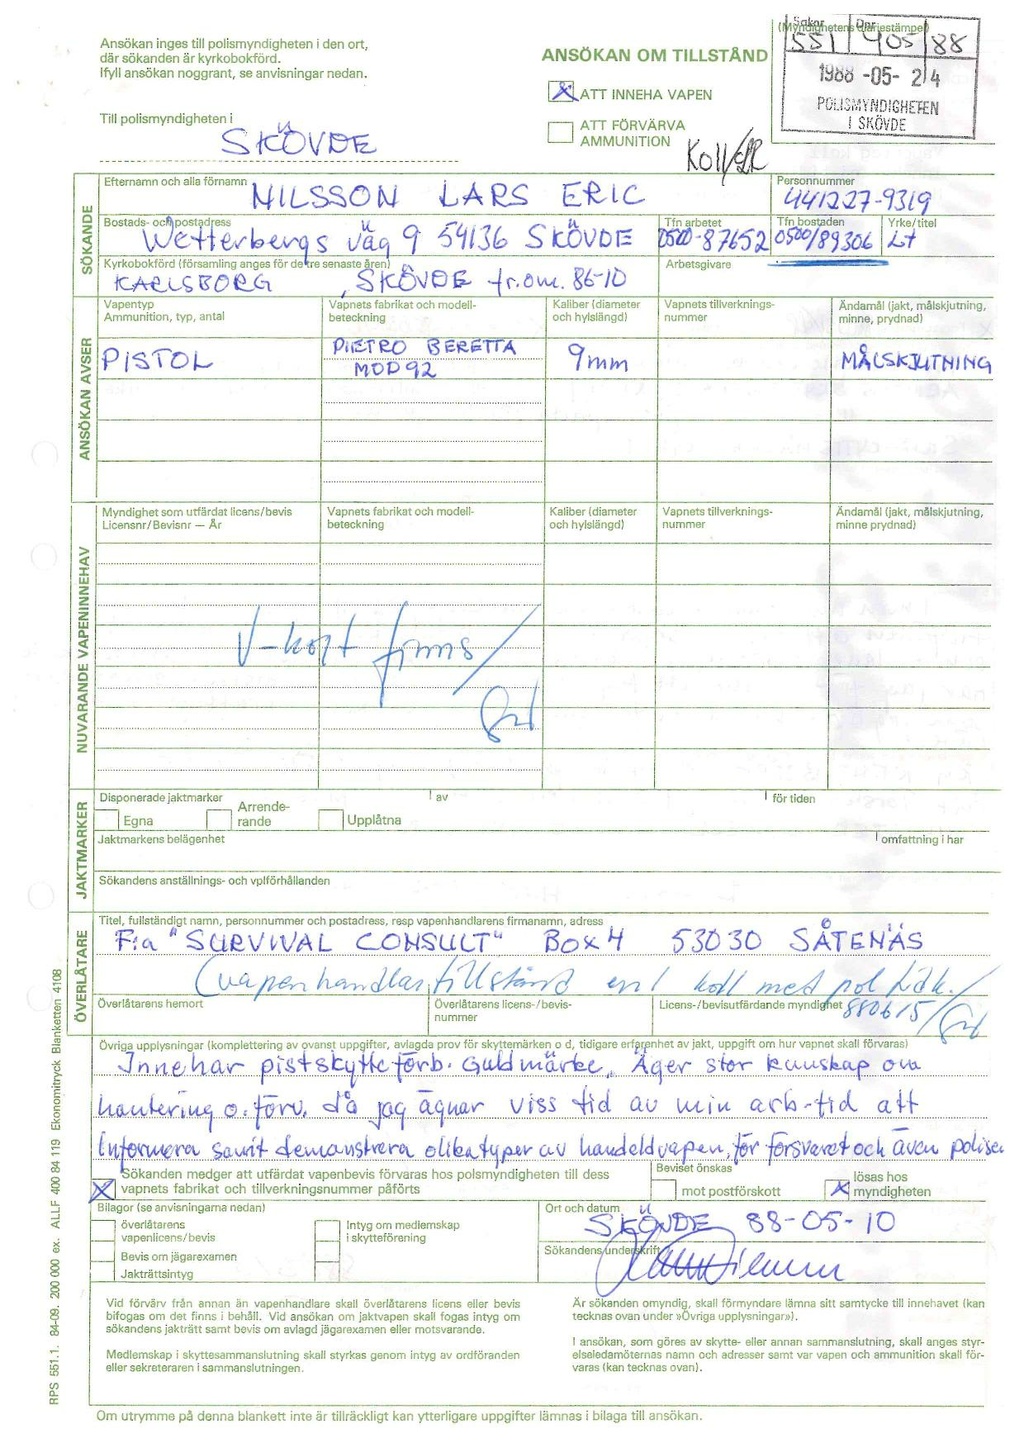 Ansökan inges till polismyndigheten i den ort,
där sökanden är kyrkobokförd.
Ifyll ansökan noggrant, se anvisningar nedan.
Till polismyndigheten i
SKÖVDE
ANSÖKAN OM TILLSTÅND
X ATT INNEHA VAPEN
ATT FÖRVÄRVA
AMMUNITION
Koll
(Myndighetens diariestämpel)
Saknr Dnr
551 405 88
1988 -05- 24
POLISMYNDIGHETEN
I SKÖVDE
SÖKANDE
Efternamn och alla förnamn
NILSSON LARS ERIC
Personnummer
441227-9319
Bostads- och postadress
Wetterbergs väg 9 54136 SKÖVDE
Tfn arbetet
0500-87652
Tfn bostaden
0500/89306
Yrke/titel
Lt
Kyrkobokförd (församling anges för de tre senaste åren)
KARLSBORG, SKÖVDE fr.o.m. 86-10
Arbetsgivare
ANSÖKAN AVSER
Vapentyp
Ammunition, typ, antal
Vapnets fabrikat och modell-
beteckning
Kaliber (diameter
och hylslängd)
Vapnets tillverknings-
nummer
Ändamål (jakt, målskjutning,
minne, prydnad)
PISTOL
PIETRO BERETTA
MOD 92
9mm
MÅLSKJUTNING
NUVARANDE VAPENINNEHAV
Myndighet som utfärdat licens/bevis
Licensnr/Bevisnr — År
Vapnets fabrikat och modell-
beteckning
Kaliber (diameter
och hylslängd)
Vapnets tillverknings-
nummer
Ändamål (jakt, målskjutning,
minne prydnad)
V-kort finns/
JAKTMARKER
Disponerade jaktmarker
Egna
Arrende-
rande
Upplåtna
av
för tiden
Jaktmarkens belägenhet
omfattning i har
Sökandens anställnings- och vplförhållanden
ÖVERLÅTARE
Titel, fullständigt namn, personnummer och postadress, resp vapenhandlarens firmanamn, adress
F:a "SURVIVAL CONSULT" Box 4 53030 SÅTENÄS
(vapenhandlartillstånd enl koll med pol Lidk.
880615/
Överlåtarens hemort
Överlåtarens licens-/bevis-
nummer
Licens-/bevisutfärdande myndighet
Övriga upplysningar (komplettering av ovanst uppgifter, avlagda prov för skyttemärken o d, tidigare erfarenhet av jakt, uppgift om hur vapnet skall förvaras)
Innehar pistskytteförb. Guldmärke. Äger stor kunskap om
hantering o. förv. då jag ägnar viss tid av min arb-tid att
informera samt demonstrera olika typer av handeldvapen, för försvaret och även polisen
X Sökanden medger att utfärdat vapenbevis förvaras hos polsmyndigheten till dess
vapnets fabrikat och tillverkningsnummer påförts
Beviset önskas
mot postförskott
X lösas hos
myndigheten
Bilagor (se anvisningarna nedan)
överlåtarens
vapenlicens/bevis
Bevis om jägarexamen
Jakträttsintyg
Intyg om medlemskap
i skytteförening
Ort och datum
SKÖVDE 88-05-10
Sökandens underskrift
Vid förvärv från annan än vapenhandlare skall överlåtarens licens eller bevis
bifogas om det finns i behåll. Vid ansökan om jaktvapen skall fogas intyg om
sökandens jakträtt samt bevis om avlagd jägarexamen eller motsvarande.
Medlemskap i skyttesammanslutning skall styrkas genom intyg av ordföranden
eller sekreteraren i sammanslutningen.
Är sökanden omyndig, skall förmyndare lämna sitt samtycke till innehavet (kan
tecknas ovan under »Övriga upplysningar»).
I ansökan, som göres av skytte- eller annan sammanslutning, skall anges styr-
elseledamöternas namn och adresser samt var vapen och ammunition skall för-
varas (kan tecknas ovan).
Om utrymme på denna blankett inte är tillräckligt kan ytterligare uppgifter lämnas i bilaga till ansökan.
RPS 551.1. 84-09. 200 000 ex. ALLF 400 84 119 Ekonomitryck Blanketten 4108